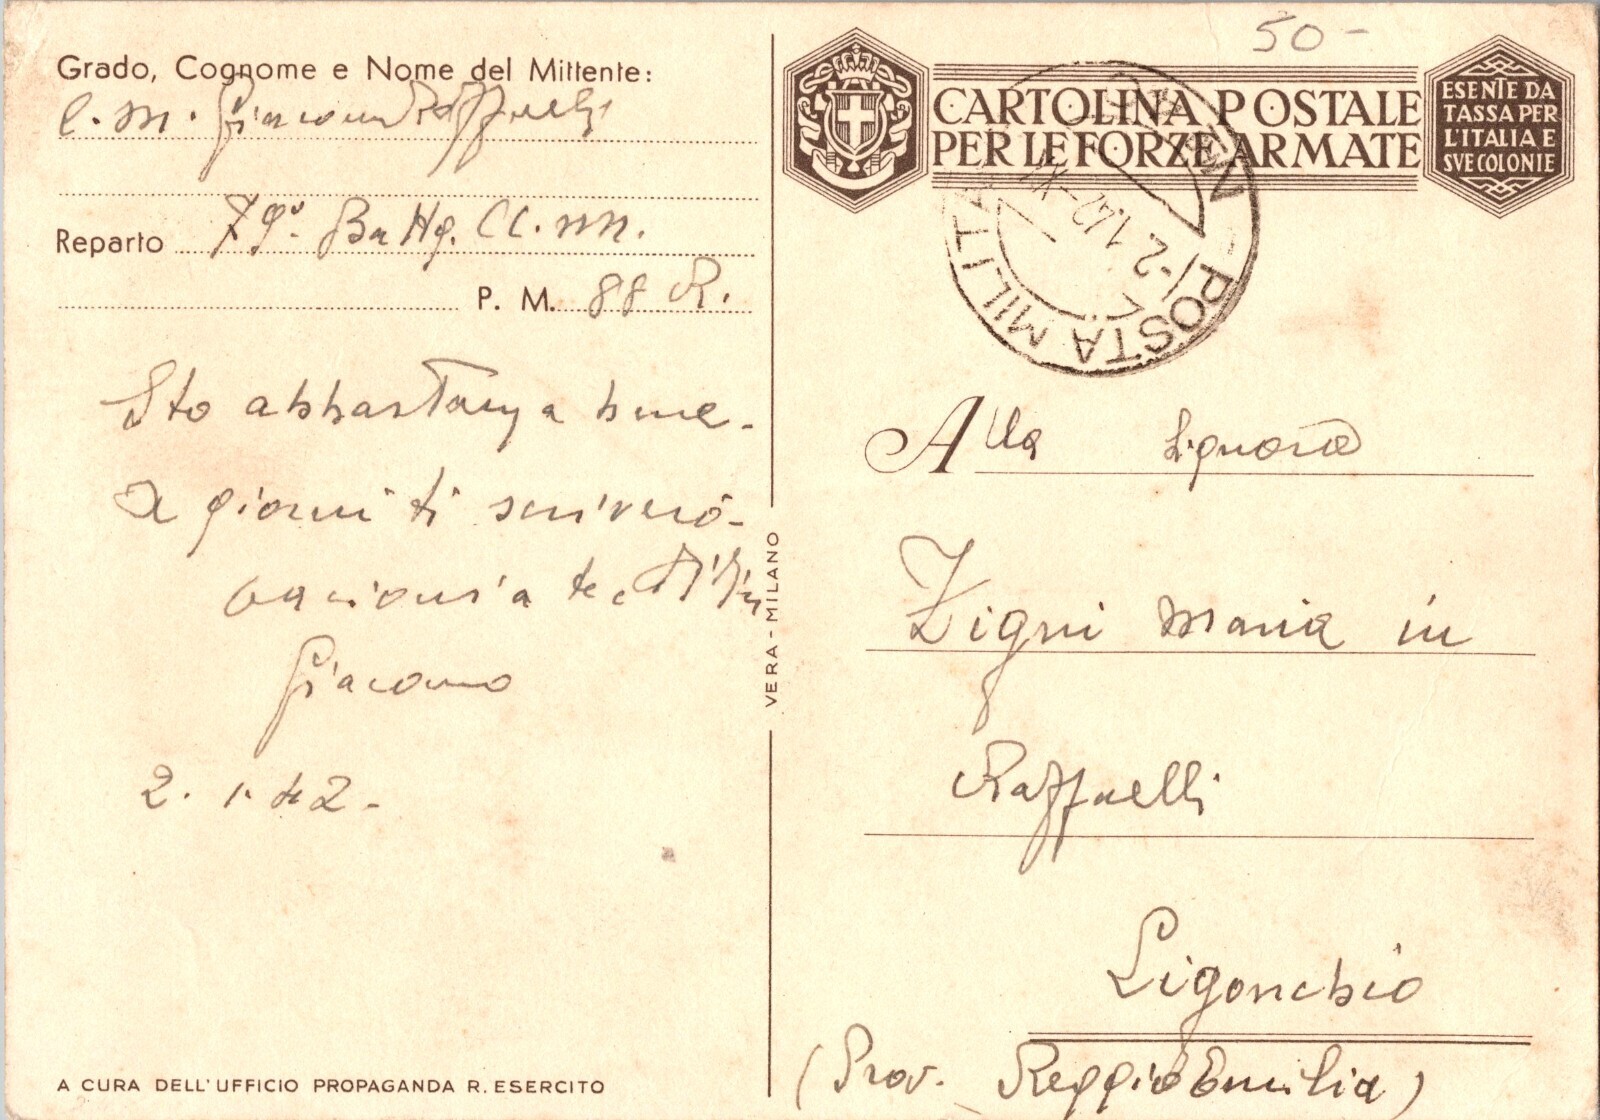 Grado, Cognome e Nome del Mittente:
C. M. Giacomo Raffaelli
Reparto 79° Battg. CC. NN.
P. M. 88 R.
Sto abbastanza bene.
A giorni ti scriverò.
Bacioni a te,
Giacomo
2. 1. 42.
A CURA DELL'UFFICIO PROPAGANDA R. ESERCITO
VERA - MILANO
50-
CARTOLINA POSTALE
PER LE FORZE ARMATE
ESENTE DA
TASSA PER
L'ITALIA E
SVE COLONIE
POSTA MILITA
-2.1.42-XX
Alla Signora
Zigni Maria in
Raffaelli
Ligonchio
(Prov. Reggio Emilia)